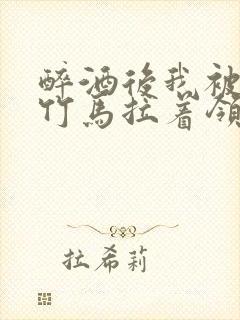 醉酒後我被
竹馬拉着領
拉希莉